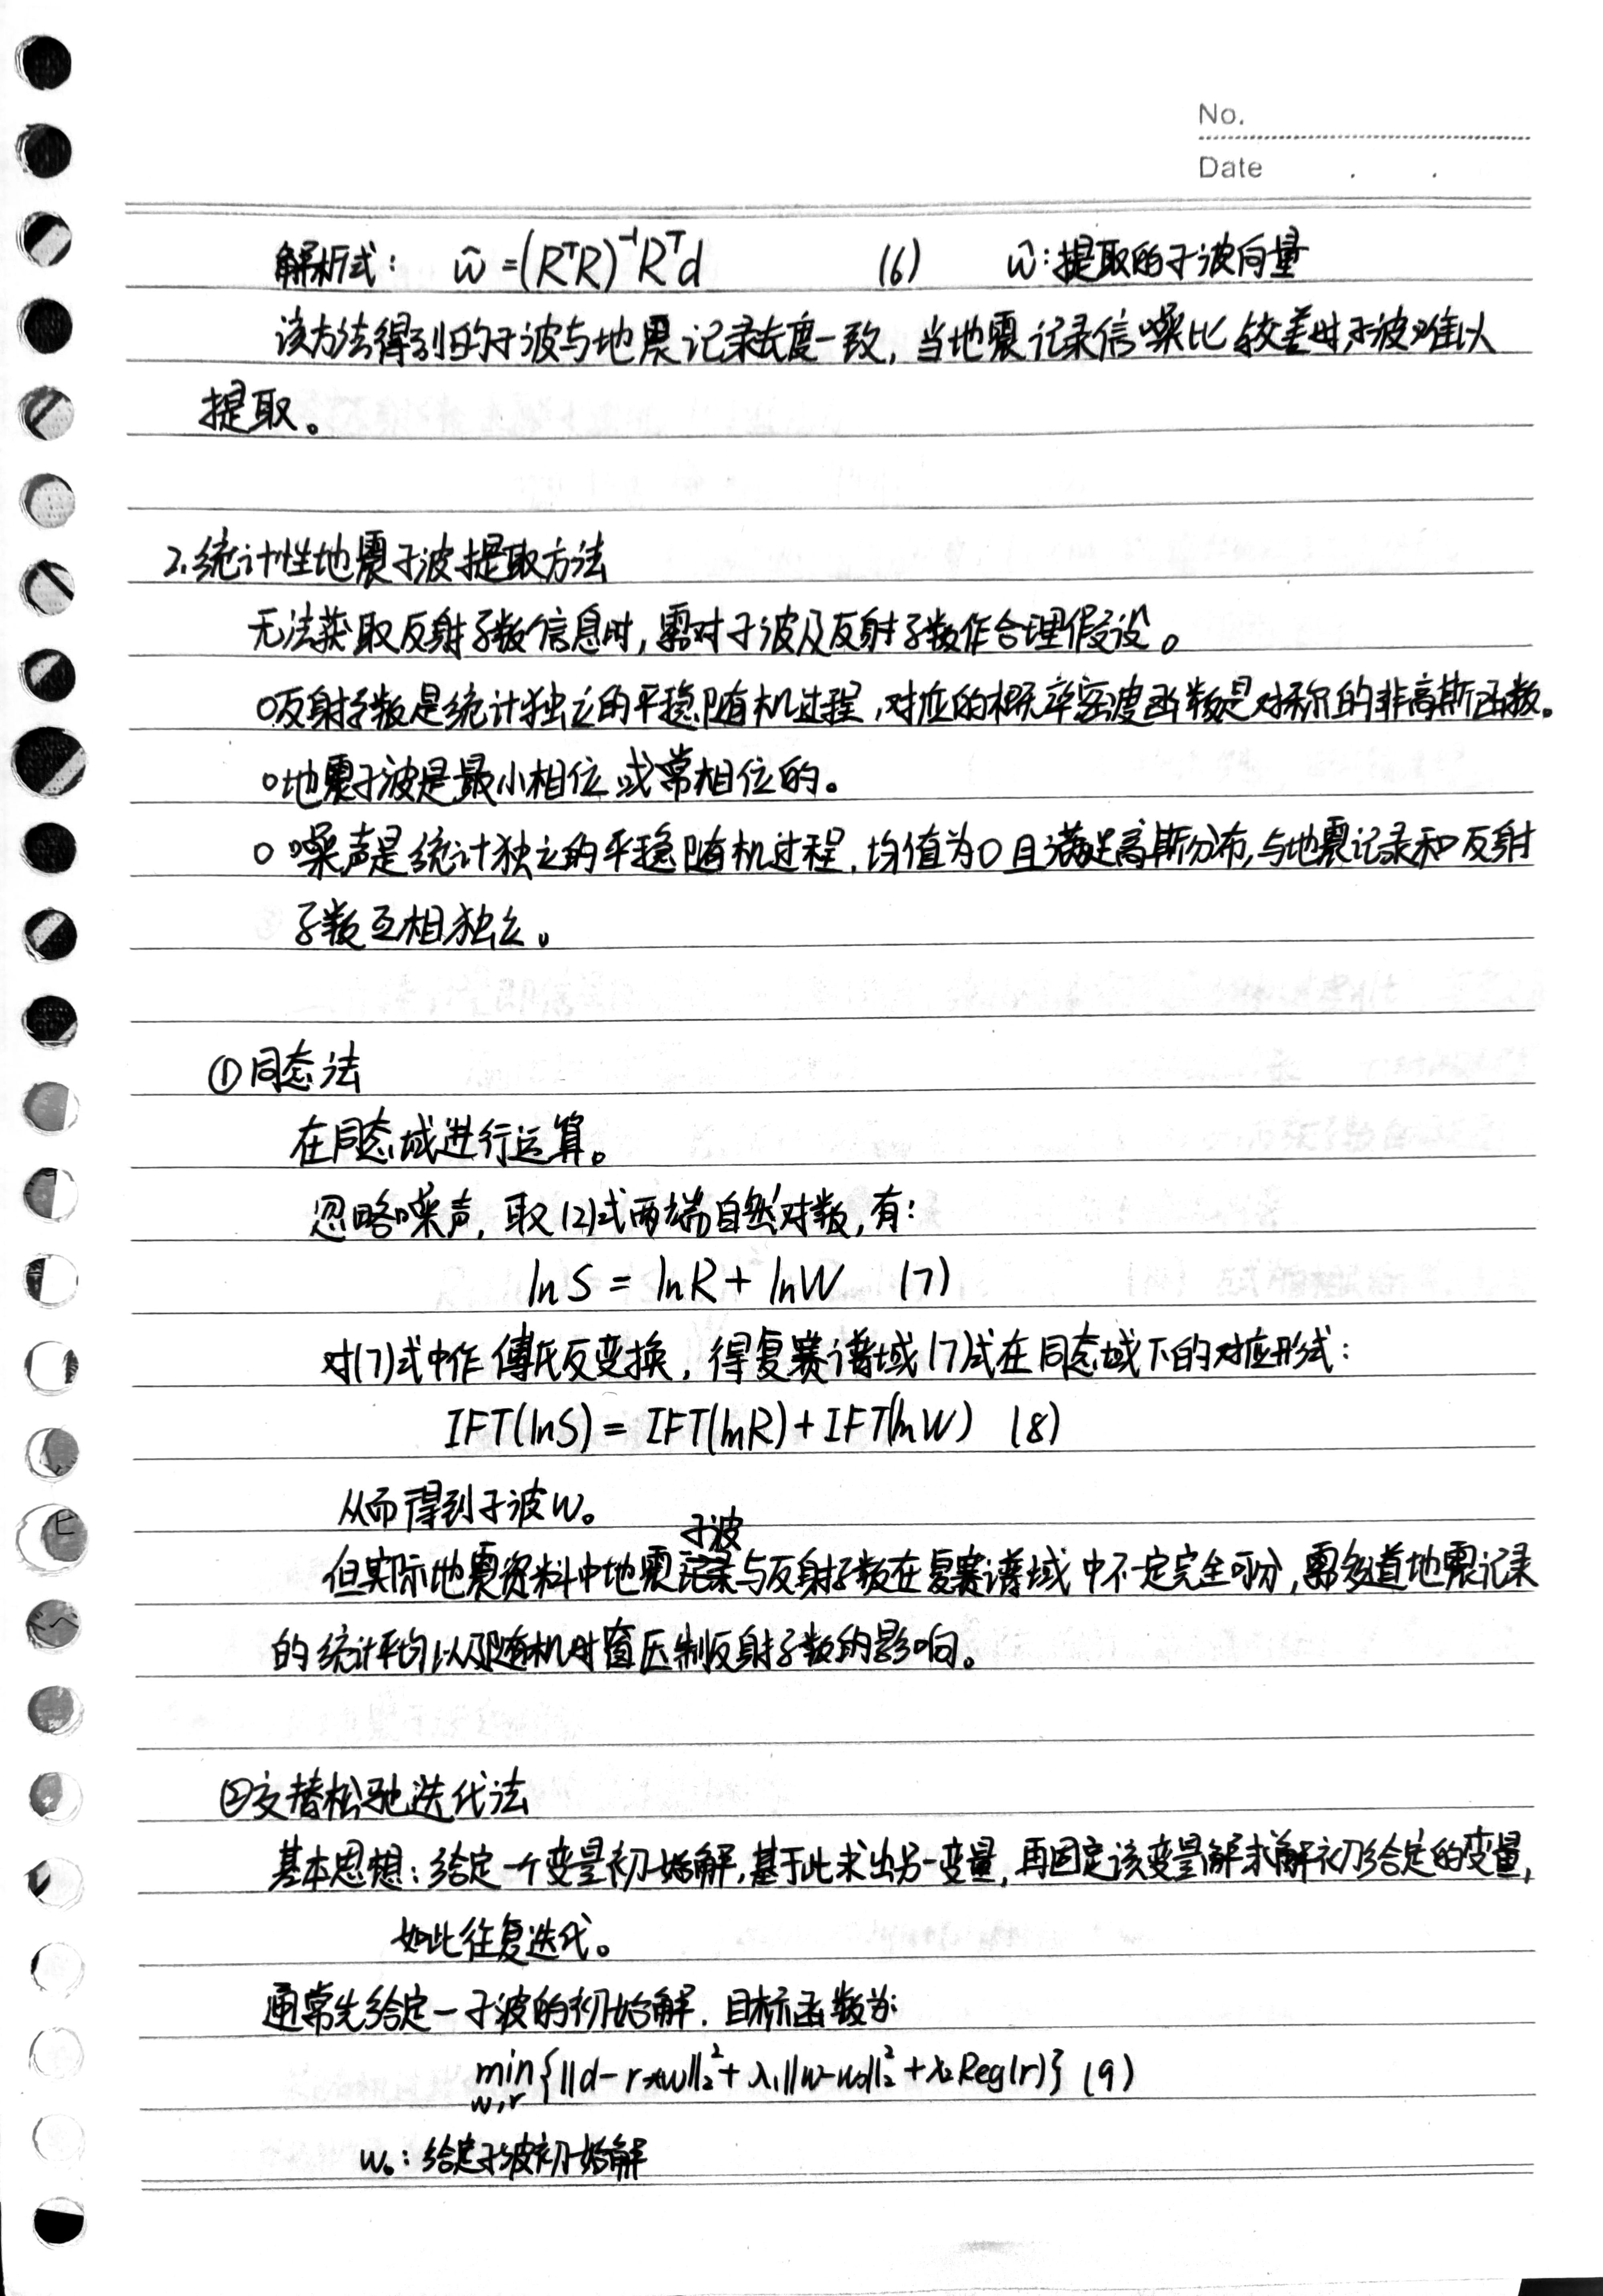 No.
Date . .
解析式: ŵ=(RᵀR)⁻¹Rᵀd (6) ŵ:提取的子波向量
该方法得到的子波与地震记录长度一致,当地震记录信噪比较差时,子波难以
提取。
2.统计性地震子波提取方法
无法获取反射系数信息时,需对子波及反射系数作合理假设。
○反射系数是统计独立的平稳随机过程,对应的概率密度函数是对称的非高斯函数。
○地震子波是最小相位或常相位的。
○噪声是统计独立的平稳随机过程,均值为0且满足高斯分布,与地震记录和反射
系数互相独立。
①同态法
在同态域进行运算。
忽略噪声,取(2)式两端自然对数,有:
lnS = lnR + lnW (7)
对(7)式中作傅氏反变换,得复赛谱域(7)式在同态域下的对应形式:
IFT(lnS) = IFT(lnR) + IFT(lnW) (8)
从而得到子波w。
子波
但实际地震资料中地震与反射系数在复赛谱域中不一定完全可分,需多道地震记录
的统计平均以及随机时窗压制反射系数的影响。
②交替松弛迭代法
基本思想:给定一个变量初始解,基于此求出另一变量,再固定该变量解求解初给定的变量,
如此往复迭代。
通常先给定一子波的初始解.目标函数为:
min{||d-r*w||₂²+λ₁||w-w₀||₂²+λ₂Reg(r)} (9)
w,r
w₀:给定子波初始解